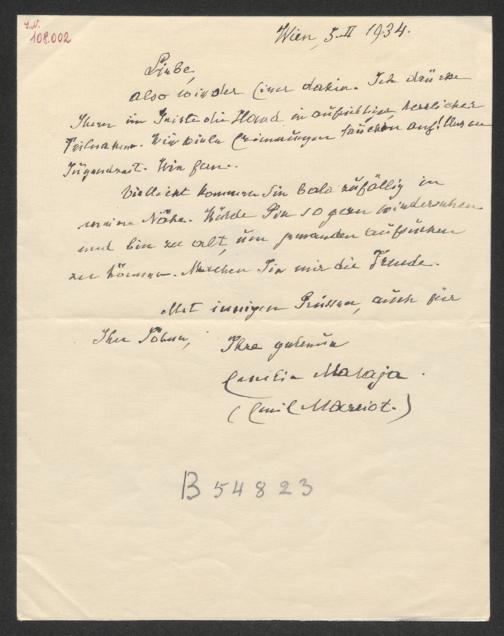 I.N.
108.002
Wien, 5. II 1934.
Liebe,
also wieder Einer dahin. Ich drücke
Ihnen im Geiste die Hand in aufrichtiger, herzlicher
Teilnahme. Wie viele Erinnerungen tauchen auf! Unsere
Jugendzeit. Wie fern.
Vielleicht kommen Sie bald zufällig in
meine Nähe. Würde Sie so gern wiedersehen
und bin zu alt, um jemanden aufsuchen
zu können. Machen Sie mir die Freude.
Mit innigen Grüssen, auch für
Ihre Söhne,
Ihre getreue
Emilie Mataja.
(Emil Marriot.)
B 54823